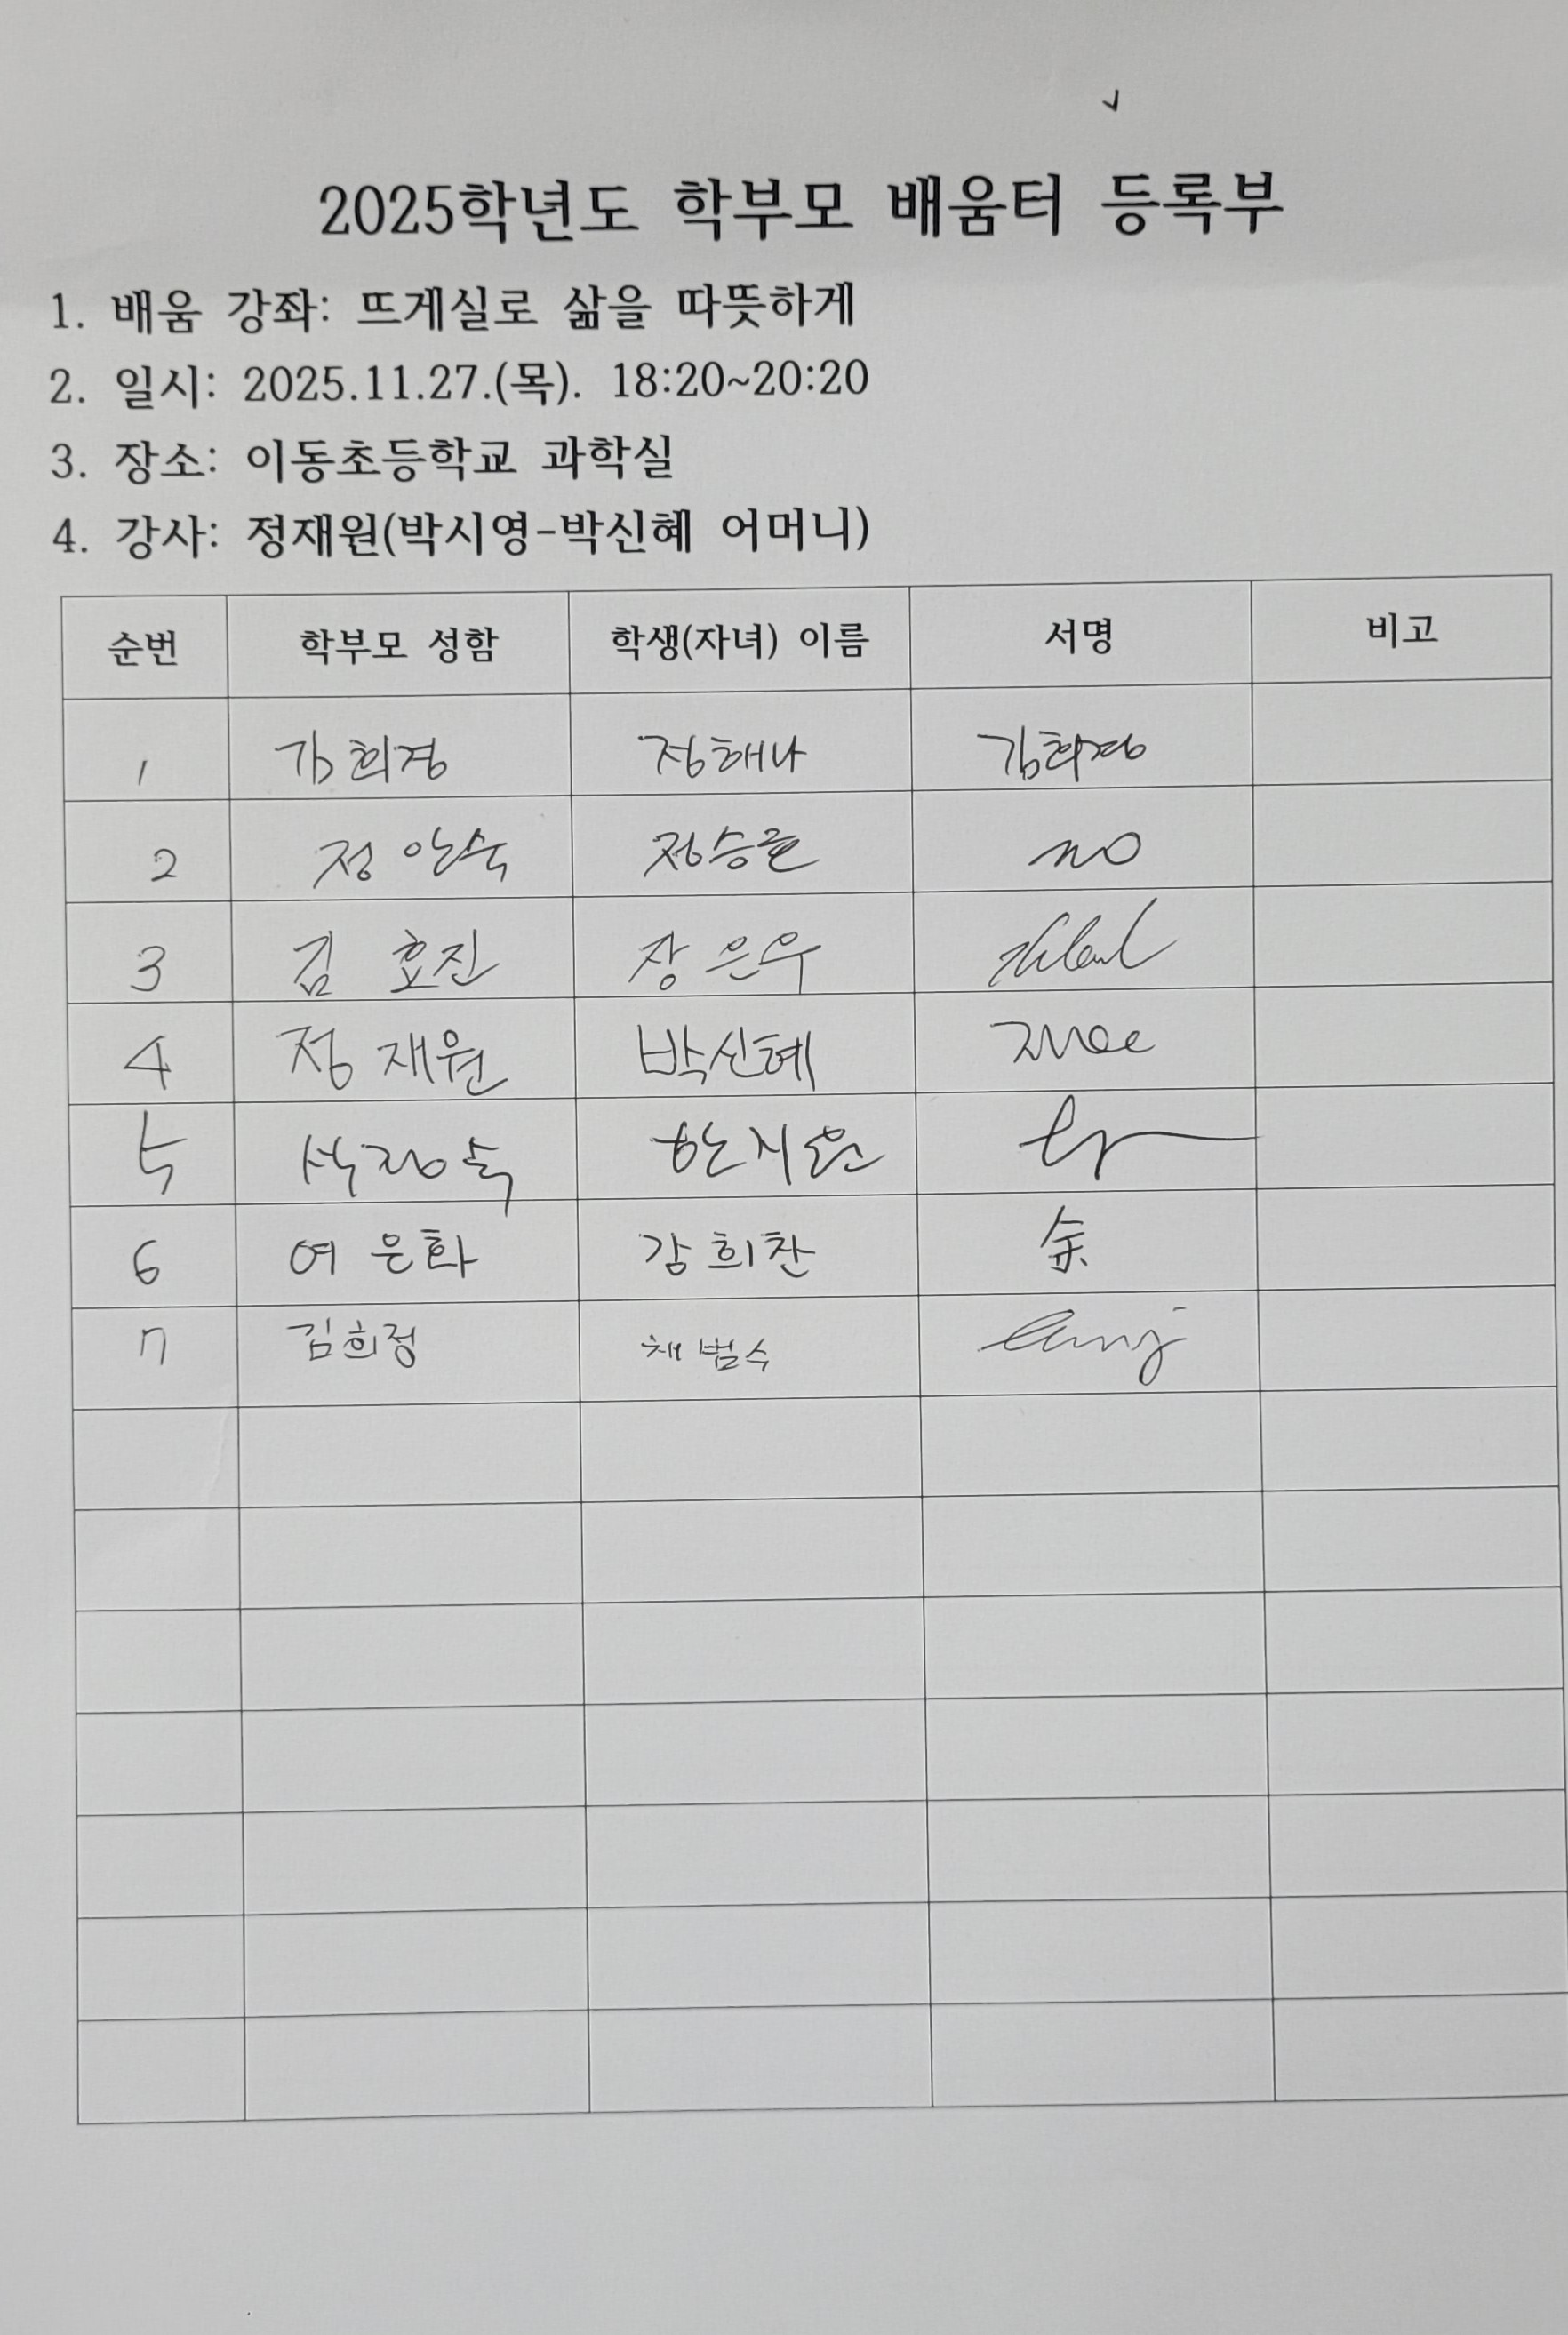 2025학년도 학부모 배움터 등록부
1. 배움 강좌: 뜨게실로 삶을 따뜻하게
2. 일시: 2025.11.27.(목). 18:20~20:20
3. 장소: 이동초등학교 과학실
4. 강사: 정재원(박시영-박신혜 어머니)
순번 학부모 성함 학생(자녀) 이름 서명 비고
1 김희경 정해나 김희경
2 정안숙 정승훈
3 김효진 장은우
4 정재원 박신혜
5 한지원
6 여은화 강희찬 余
7 김희정 채범수